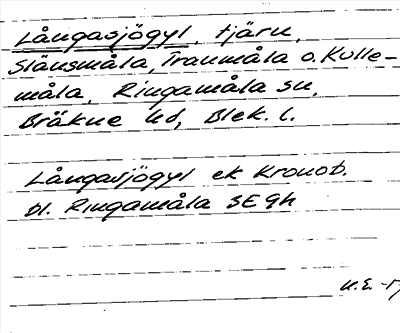 Långasjögyl, tjärn,
Slänsmåla, Tranmåla o. Kulle-
måla, Ringamåla sn,
Bräkne hd, Blek. l.
Långasjögyl ek Kronob.
bl. Ringamåla SE 9h